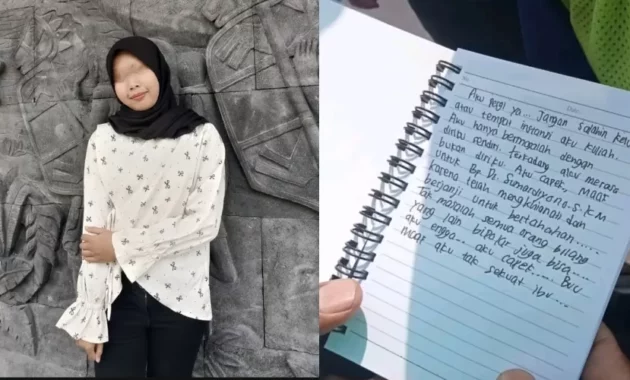 No. Date:
Aku Pergi ya... Jangan Salahin Kam
atau tempat instansi aku kuliah.
Aku hanya bermasalah dengan
diriku sendiri. terkadang aku merasa
bukan diriku. Aku capek. Maaf
untuk Bp. Dr. Sumardiyono.S.K.M
karena telah mengkhianati dan
berjanji untuk bertahan....
Tak masalah semua orang bilang
yang lain bisa kok juga bisa....
aku engga... aku capek.... Buu
Maaf aku tak sekuat Ibu...